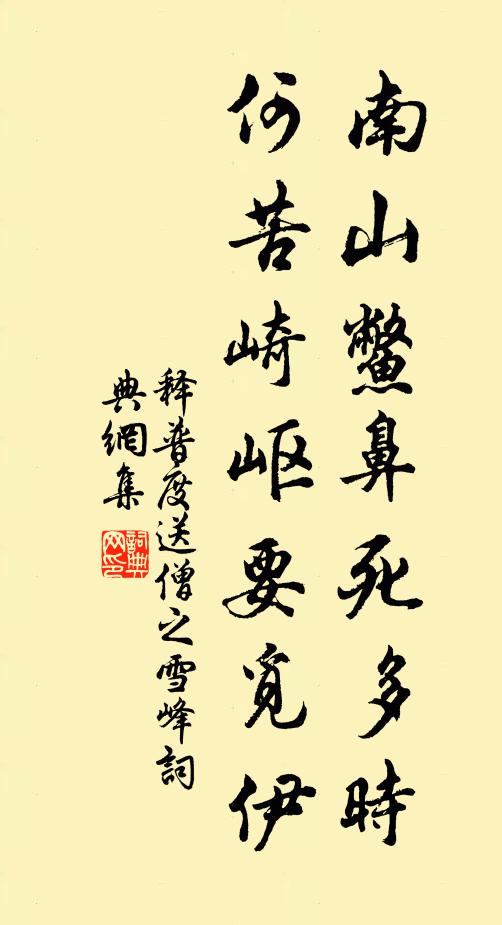 南山鱉鼻死多時
何苦崎岖要覓伊
释普度送僧之雪峰詞
典網集
詞典
网印